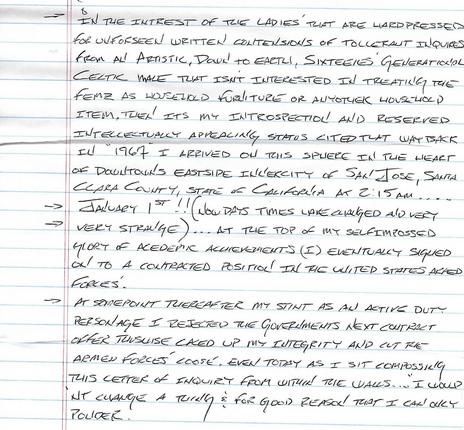 → IN THE INTREST OF THE LADIES' THAT ARE HARDPRESSED
FOR UNFORSEEN WRITTEN CONTENSIONS OF TOLLERANT INQUIRES
FROM AN ARTISTIC, DOWN TO EARTH, SIXTEEIES' GENERATIONAL
CELTIC MALE THAT ISN'T INTERESTED IN TREATING THE
FEMZ AS HOUSEHOLD FURNITURE OR ANYOTHER HOUSEHOLD
ITEM, THEN ITS MY INTROSPECTION AND RESERVED
INTELLECTUALLY APPEALING STATUS CITED THAT WAY BACK
IN "1967" I ARRIVED ON THIS SPHERE IN THE HEART
OF DOWNTOWN'S EASTSIDE INNERCITY OF SAN JOSE, SANTA
CLARA COUNTY, STATE OF CALIFORNIA AT 2:15 AM....
→ JANUARY 1ST!! (NOW DAYS TIMES HAVE CHANGED AND VERY
→ VERY STRANGE)... AT THE TOP OF MY SELFIMPOSSED
GLORY OF ACEDEMIC ACHIEVEMENTS (I) EVENTUALLY SIGNED
ON TO A CONTRACTED POSITION IN THE UNITED STATES ARMED
FORCES'.
→ AT SOMEPOINT THEREAFTER MY STINT AS AN ACTIVE DUTY
PERSONAGE I REJECTED THE GOVERNMENTS NEXT CONTRACT
OFFER THUSLIKE LACED UP MY INTEGRITY AND CUT THE
ARMED FORCES' LOOSE. EVEN TODAY AS I SIT COMPOSSING
THIS LETTER OF INQUIRY FROM WITHIN THE WALLS... I WOULD
N'T CHANGE A THING & FOR GOOD REASON THAT I CAN ONLY
PONDER.